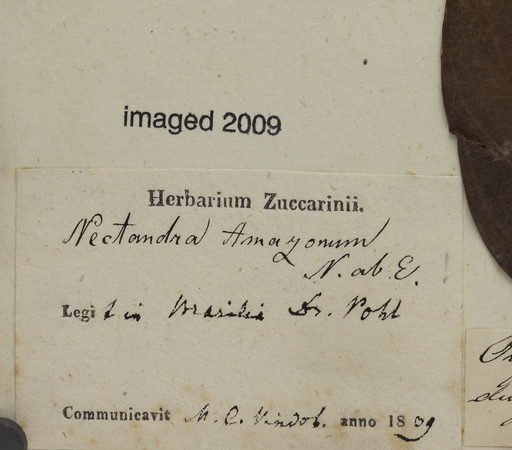 imaged 2009
Herbarium Zuccarinii.
Nectandra Amazonum
N. ab E.
Legit in Brasilia Dr. Pohl
Communicavit M. C. Vindob. anno 1839